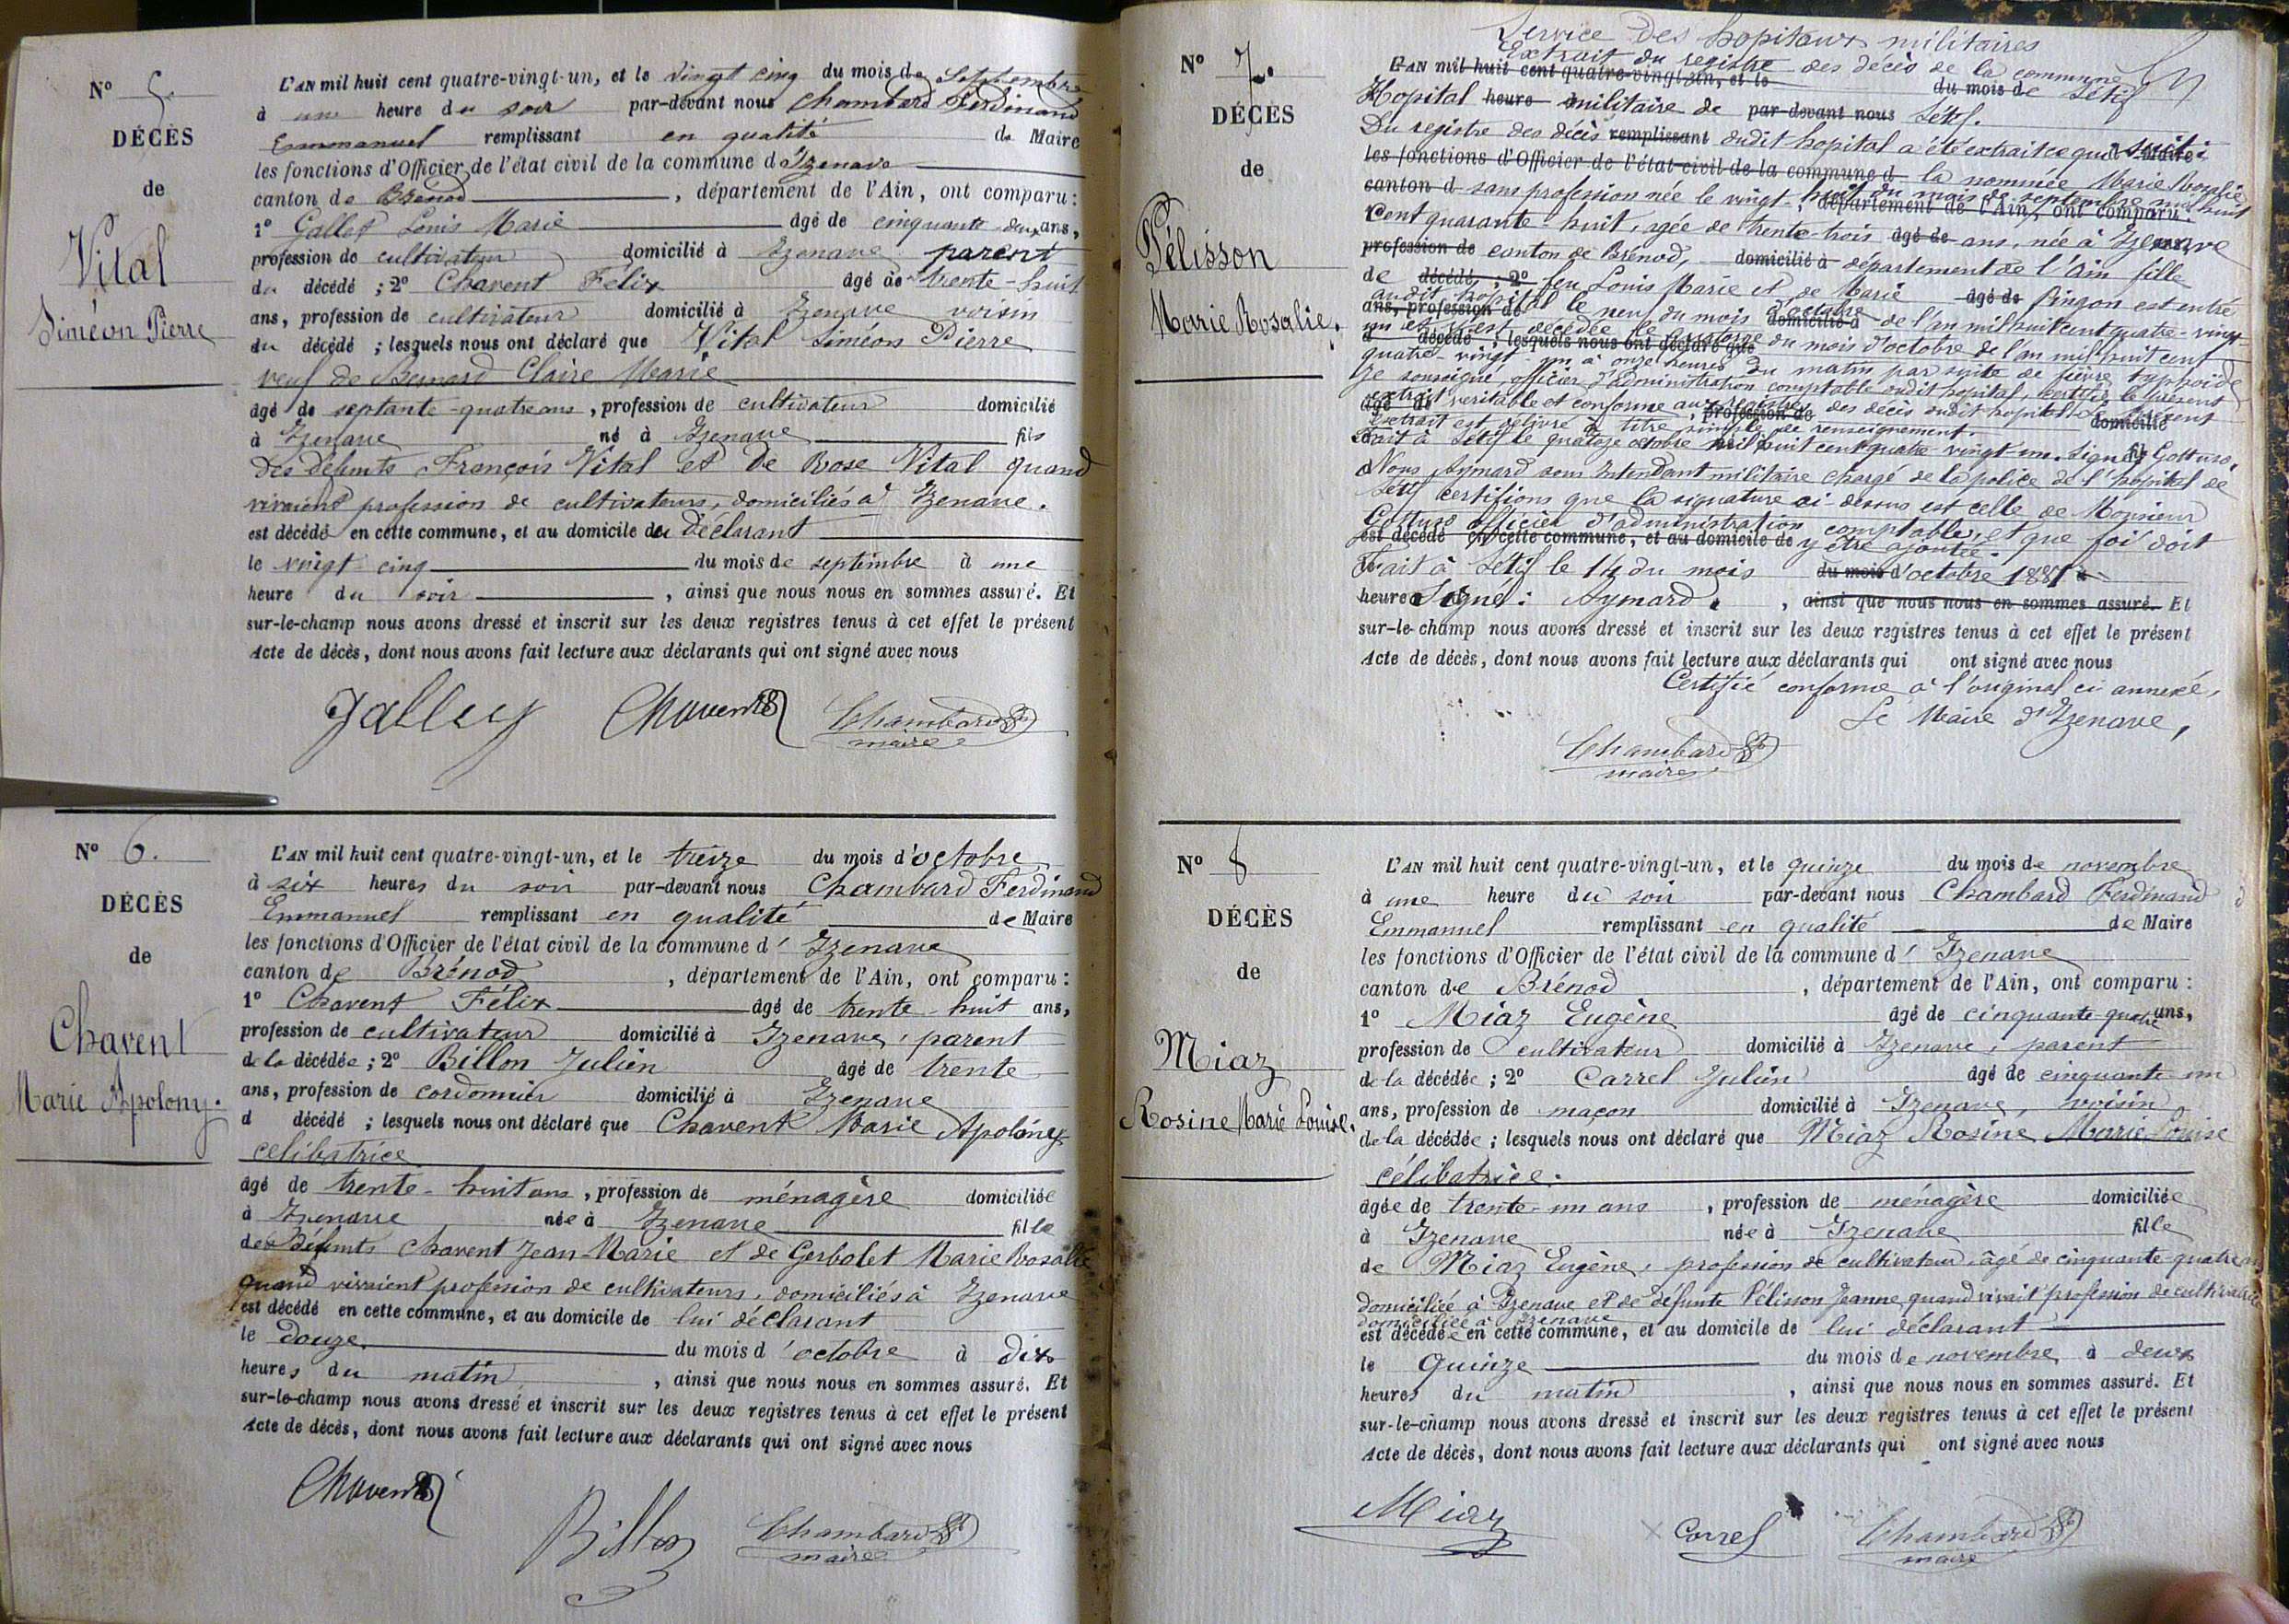 N° 5.
DÉCÈS
de
Vital
Siméon Pierre
L'AN mil huit cent quatre-vingt-un, et le vingt cinq du mois de Septembre
à une heure du soir par-devant nous Chambard Ferdinand
Emmanuel remplissant en qualité de Maire
les fonctions d'Officier de l'état civil de la commune d'Izenave
canton de Brénod, département de l'Ain, ont comparu :
1° Gallet Louis Marie âgé de cinquante deux ans,
profession de cultivateur domicilié à Izenave parent
du décédé ; 2° Chavent Félix âgé de trente-huit
ans, profession de cultivateur domicilié à Izenave voisin
du décédé ; lesquels nous ont déclaré que Vital Siméon Pierre
veuf de Bernard Claire Marie
âgé de septante-quatre ans, profession de cultivateur domicilié
à Izenave né à Izenave fils
des défunts François Vital et de Rose Vital quand
vivaient profession de cultivateurs, domiciliés à Izenave.
est décédé en cette commune, et au domicile du déclarant
le vingt cinq du mois de septembre à une
heure du soir, ainsi que nous nous en sommes assuré. Et
sur-le-champ nous avons dressé et inscrit sur les deux registres tenus à cet effet le présent
Acte de décès, dont nous avons fait lecture aux déclarants qui ont signé avec nous
Chavent Chambard
maire
N° 6.
DÉCÈS
de
Chavent
Marie Apolony.
L'AN mil huit cent quatre-vingt-un, et le treize du mois d'octobre
à six heures du soir par-devant nous Chambard Ferdinand
Emmanuel remplissant en qualité de Maire
les fonctions d'Officier de l'état civil de la commune d'Izenave
canton de Brénod, département de l'Ain, ont comparu :
1° Chavent Félix âgé de trente-huit ans,
profession de cultivateur domicilié à Izenave, parent
de la décédée ; 2° Billon Julien âgé de trente
ans, profession de cordonnier domicilié à Izenave
d décédé ; lesquels nous ont déclaré que Chavent Marie Apolony
célibatrice
âgé de trente-huit ans, profession de ménagère domiciliée
à Izenave née à Izenave fille
des défunts Chavent Jean-Marie et de Gerbolet Marie Rosalie
quand vivaient profession de cultivateurs, domiciliés à Izenave
est décédé en cette commune, et au domicile de lui déclarant
le douze du mois d'octobre à dix
heures du matin, ainsi que nous nous en sommes assuré. Et
sur-le-champ nous avons dressé et inscrit sur les deux registres tenus à cet effet le présent
Acte de décès, dont nous avons fait lecture aux déclarants qui ont signé avec nous
Chavent
Billon Chambard
maire
N° 7.
DÉCÈS
de
Pélisson
Marie Rosalie.
Service des hopitaux militaires
Extrait du registre des décès de la commune
L'AN mil huit cent quatre-vingt-un, et le du mois de Sétif
Hopital heure militaire de par-devant nous Sétif.
Du registre des décès remplissant dudit hopital a été extrait ce qui suit :
les fonctions d'Officier de l'état civil de la commune d la nommée Marie Rosalie
canton d sans profession née le vingt-huit du mois de septembre mil huit
département de l'Ain, ont comparu :
cent quarante-huit, agée de trente-trois âgé de ans, née à Izenave
profession de canton de Brénod, domicilié à département de l'Ain fille
de décédé ; 2° feu Louis Marie et de Marie âgé de Pingon est entré
audit hopital le neuf du mois d'octobre de l'an mil huit cent quatre-vingt-
ans, profession de domicilié à
un et y est décédée le quatorze du mois d'octobre de l'an mil huit cent
d décédé ; lesquels nous ont déclaré que
quatre-vingt un à onze heures du matin par suite de fièvre typhoïde
Je soussigné, officier d'administration comptable dudit hopital, certifie le présent
extrait véritable et conforme aux registres des décès dudit hopital. Le présent
âgé de, profession de domicilié
extrait est délivré à titre simple de renseignement.
Fait à Sétif le quatorze octobre mil huit cent quatre-vingt-un. Signé Gottuso.
Nous Aymard sous Intendant militaire chargé de la police de l'hopital de
Sétif certifions que la signature ci-dessus est celle de Monsieur
Gottuso officier d'administration comptable, et que foi doit
est décédé en cette commune, et au domicile de y être ajoutée.
Fait à Sétif le 14 du mois du mois d'octobre 1881
heure Signé : Aymard., ainsi que nous nous en sommes assuré. Et
sur-le-champ nous avons dressé et inscrit sur les deux registres tenus à cet effet le présent
Acte de décès, dont nous avons fait lecture aux déclarants qui ont signé avec nous
Certifié conforme à l'original ci annexé,
Le Maire d'Izenave,
Chambard
maire
N° 8
DÉCÈS
de
Miaz
Rosine Marie Louise.
L'AN mil huit cent quatre-vingt-un, et le quinze du mois de novembre
à une heure du soir par-devant nous Chambard Ferdinand
Emmanuel remplissant en qualité de Maire
les fonctions d'Officier de l'état civil de la commune d'Izenave
canton de Brénod, département de l'Ain, ont comparu :
1° Miaz Eugène âgé de cinquante quatre ans,
profession de cultivateur domicilié à Izenave, parent
de la décédée ; 2° Carrel Julien âgé de cinquante-un
ans, profession de maçon domicilié à Izenave, voisin
de la décédée ; lesquels nous ont déclaré que Miaz Rosine Marie Louise
célibatrice.
âgée de trente-un ans, profession de ménagère domiciliée
à Izenave née à Izenave fille
de Miaz Eugène, profession de cultivateur, âgé de cinquante-quatre ans
domiciliée à Izenave et de défunte Pélisson Jeanne, quand vivait profession de cultivatrice
domiciliée à Izenave
est décédée en cette commune, et au domicile de lui déclarant
le Quinze du mois de novembre à deux
heures du matin, ainsi que nous nous en sommes assuré. Et
sur-le-champ nous avons dressé et inscrit sur les deux registres tenus à cet effet le présent
Acte de décès, dont nous avons fait lecture aux déclarants qui ont signé avec nous
Miaz
Carrel Chambard
maire